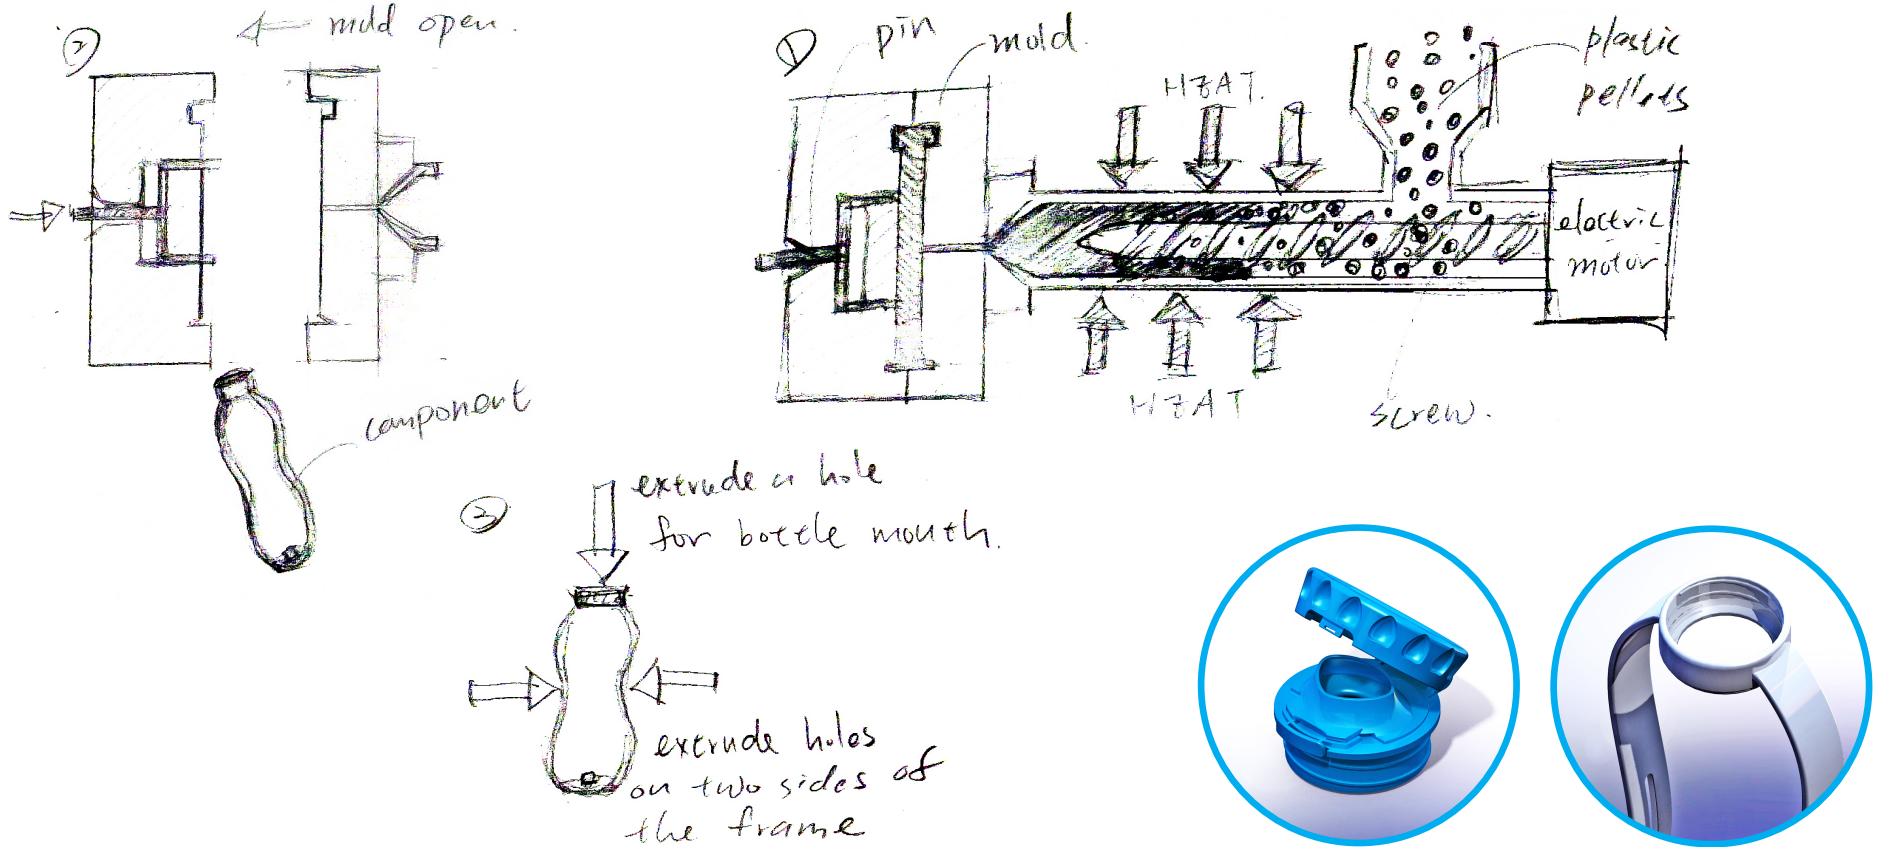 2
← mold open.
component
1
pin
mold.
HEAT.
plastic
pellets
electric
motor
HEAT
screw.
3
extrude a hole
for bottle mouth.
extrude holes
on two sides of
the frame